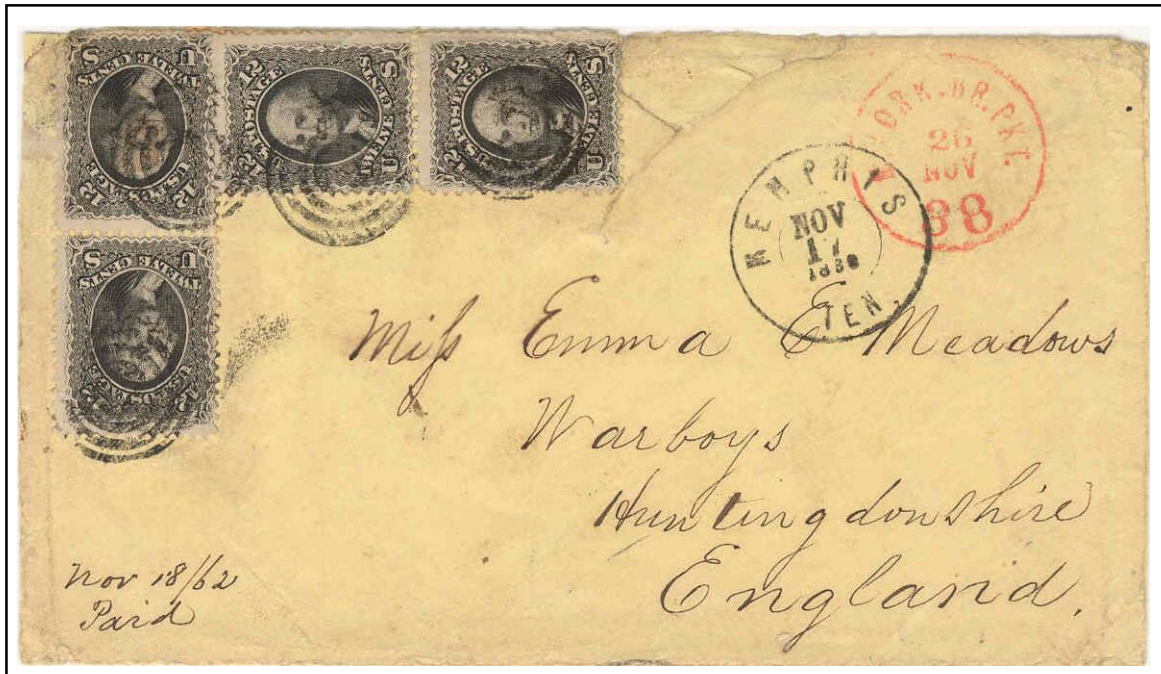 12 12
U.S. POSTAGE
TWELVE CENTS
U S
12 12
U.S. POSTAGE
TWELVE CENTS
U S
12 12
U.S. POSTAGE
TWELVE CENTS
U S
12 12
U.S. POSTAGE
TWELVE CENTS
U S
YORK. BR. PKT.
26
NOV
38
MEMPHIS
NOV
17
TEN.
Miſs Emma E Meadows
Warboys
Huntingdonshire
England.
Nov 18/62
Paid